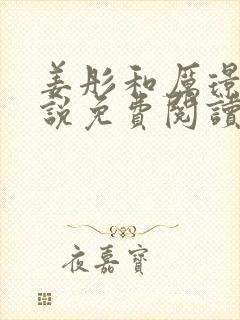 姜彤和厲璟
說免費閱讀
夜嘉寶